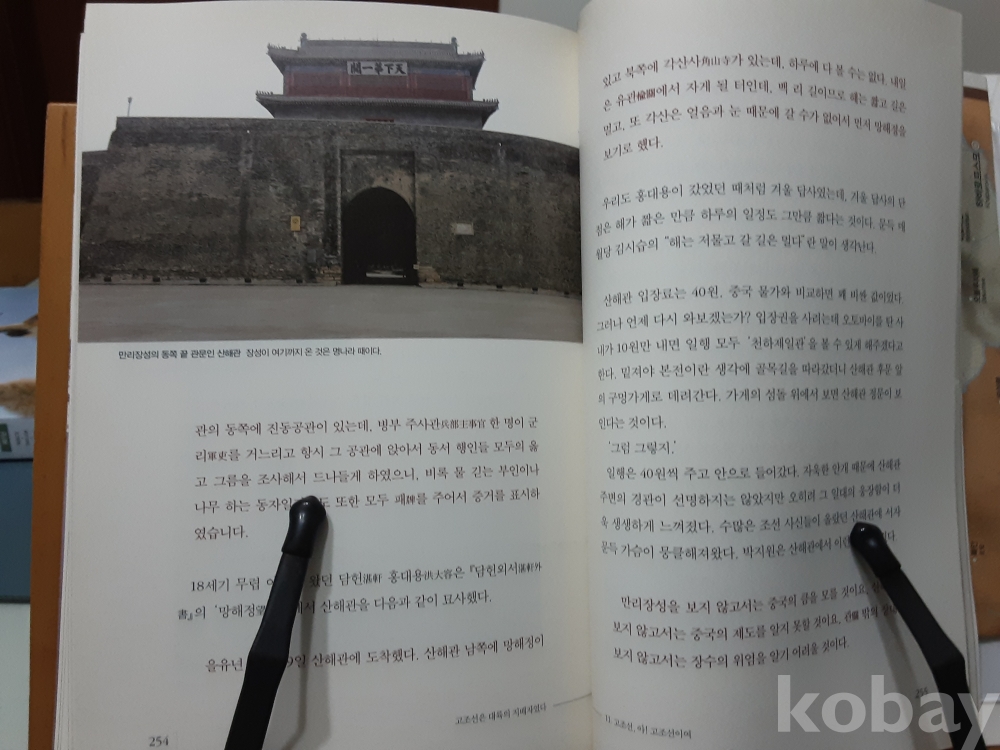 天下第一關
만리장성의 동쪽 끝 관문인 산해관 장성이 여기까지 온 것은 명나라 때이다.
관의 동쪽에 진동공관이 있는데, 병부 주사관兵部主事官 한 명이 군
리軍吏를 거느리고 항시 그 공관에 앉아서 동서 행인들 모두의 옳
고 그름을 조사해서 드나들게 하였으니, 비록 물 긷는 부인이나
나무 하는 동자일 도 또한 모두 패牌를 주어서 증거를 표시하
였습니다.
18세기 무렵 왔던 담헌湛軒 홍대용洪大容은 『담헌외서湛軒外
書』의 '망해정 에서 산해관을 다음과 같이 묘사했다.
을유년 9일 산해관에 도착했다. 산해관 남쪽에 망해정이
고조선은 대륙의 지배자였다
254
있고 북쪽에 각산사角山寺가 있는데, 하루에 다 볼 수는 없다. 내일
은 유관楡關에서 자게 될 터인데, 백 리 길이므로 해는 짧고 길은
멀고, 또 각산은 얼음과 눈 때문에 갈 수가 없어서 먼저 망해정을
보기로 했다.
우리도 홍대용이 갔었던 때처럼 겨울 답사였는데, 겨울 답사의 단
점은 해가 짧은 만큼 하루의 일정도 그만큼 짧다는 것이다. 문득 매
월당 김시습의 "해는 저물고 갈 길은 멀다"란 말이 생각난다.
산해관 입장료는 40원, 중국 물가와 비교하면 꽤 비싼 값이었다.
그러나 언제 다시 와보겠는가? 입장권을 사려는데 오토바이를 탄 사
내가 10원만 내면 일행 모두 '천하제일관'을 볼 수 있게 해주겠다고
한다. 밑져야 본전이란 생각에 골목길을 따라갔더니 산해관 후문 앞
의 구멍가게로 데려간다. 가게의 섬돌 위에서 보면 산해관 정문이 보
인다는 것이다.
'그럼 그렇지.'
일행은 40원씩 주고 안으로 들어갔다. 자욱한 안개 때문에 산해관
주변의 경관이 선명하지는 않았지만 오히려 그 일대의 웅장함이 더
욱 생생하게 느껴졌다. 수많은 조선 사신들이 올랐던 산해관에 서자
문득 가슴이 뭉클해져왔다. 박지원은 산해관에서
만리장성을 보지 않고서는 중국의 큼을 모를 것이요,
보지 않고서는 중국의 제도를 알지 못할 것이요, 관關 밖의
보지 않고서는 장수의 위엄을 알기 어려울 것이다.
11. 고조선, 아! 고조선이여
kobay